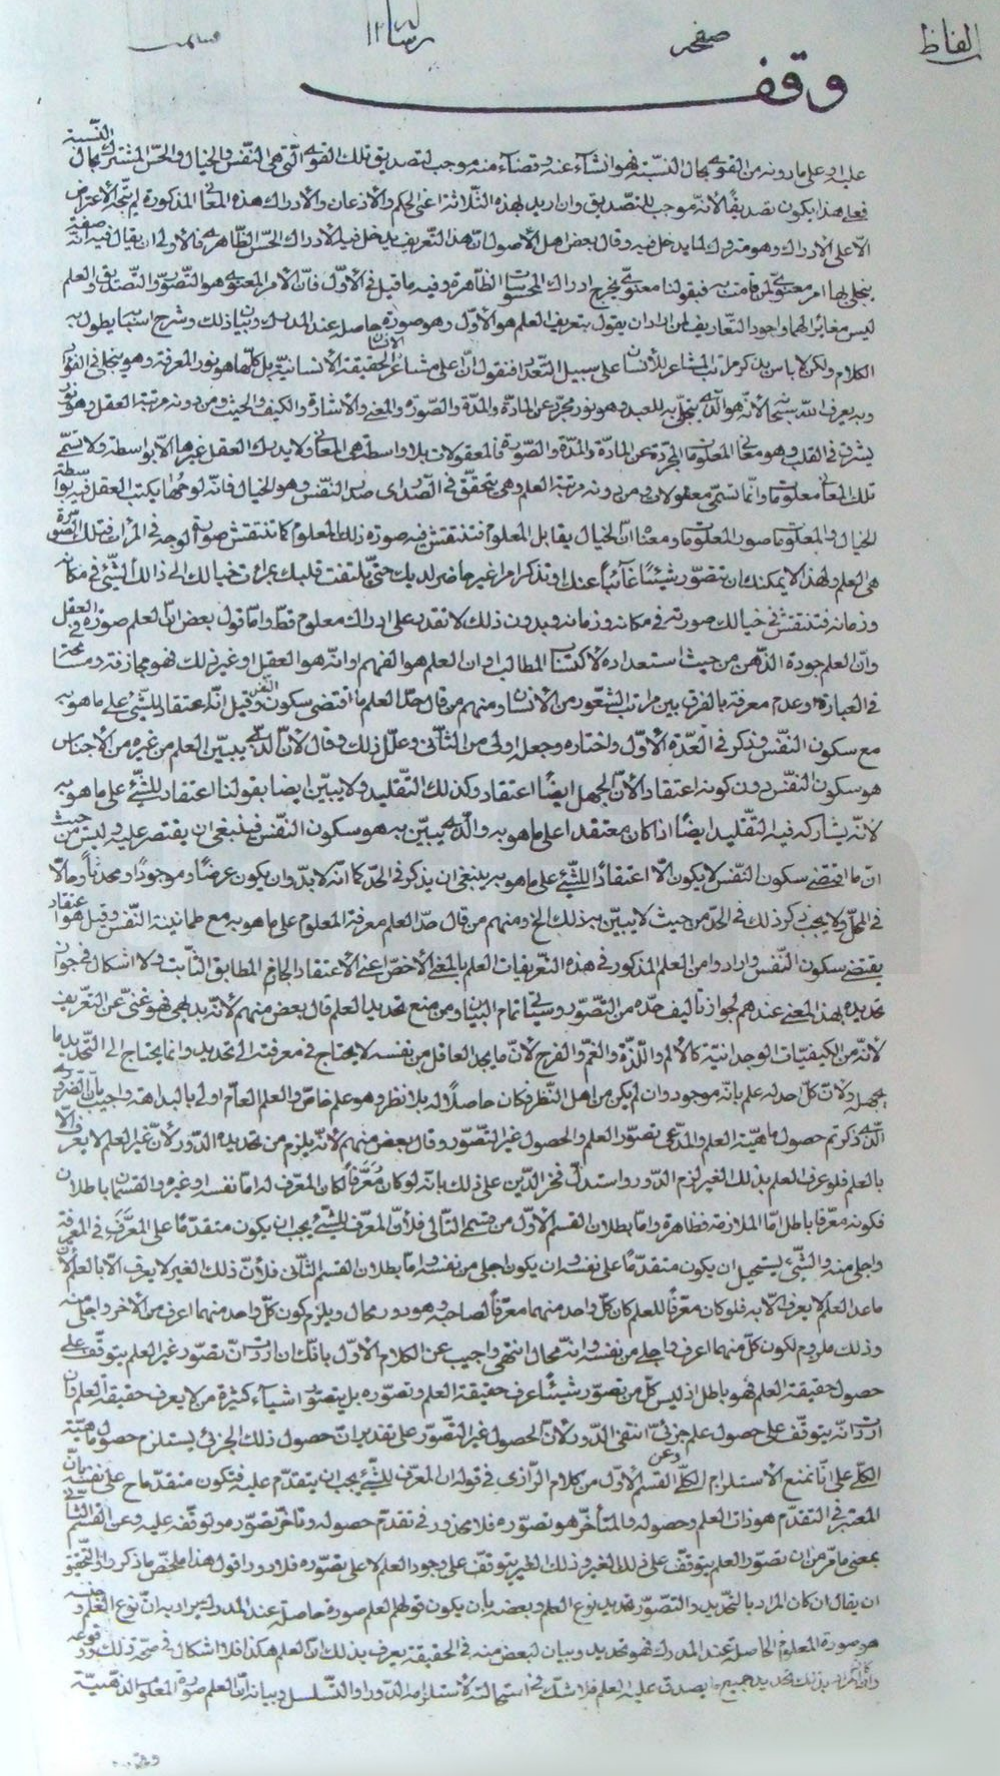 الفاظ صفحه رسالة ١٢
وقف
عليه او على ما دونه من القوى بحال النسبة فهو انشاء عنه وقضاء منه موجب لتصديق تلك القوى التي هي النفس والخيال والحس المشترك بحال النسبة
فعلى هذا يكون تصديقًا لأنه موجب للتصديق وان اريد بهذه الثلاثة اعني الحكم والاذعان والادراك هذه المعاني المذكورة لم يتجه الاعتراض
الا على الادراك وهو متروك لما يدخل فيه وقال بعض اهل الاصول ان هذا التعريف يدخل فيه الادراك الحس الظاهري فالاولى ان يقال فيه انه صفة
يتجلى بها امر معنوي لمن قامت به فبقولنا معنوي يخرج ادراك المحسوسات الظاهرة وفيه ما قيل في الأول فان الامر المعنوي هو التصور والتصديق والعلم
ليس مغائرا لهما واجود التعاريف لمن اراد ان يقول بتعريف العلم هو الاول وهو صورة حاصلة عند المدرك وبيان ذلك وشرح اسبابه يطول به
الكلام ولكن لا باس بذكر مراتب المشاعر للانسان على سبيل التعداد فنقول ان اعلى مشاعر الحقيقة الانسانية بل كلها هو نور المعرفة وهو يتجلى في الفؤاد
وبه يعرف الله سبحانه لانه هو الذي يتجلى به للعبد وهو نور مجرد عن المادة والمدة والصورة والمعنى والاشارة والكيف والحيث ومن دونه مرتبة العقل وهو نور
يشرق في القلب وهو معاني المعلومات المجردة عن المادة والمدة والصورة فالمعقولات بلا واسطة هي المعاني ولا يدرك العقل غيرها الا بواسطة ولا تسمى
تلك المعاني معلومات وانما تسمى معقولات ومن دونه مرتبة العلم وهي يتحقق في الصدر اي صدر النفس وهو الخيال فانه لوحها يكتب العقل فيه بواسطة
الخيال والمعلومات صور المعلومات ومعناه ان الخيال يقابل المعلوم فتنتقش فيه صورة ذلك المعلوم كما تنتقش صورة الوجه في المرآت فتلك الصورة
هي العلم ولهذا لا يمكنك ان تتصور شيئًا غائبًا عنك او تذكر امرا غير حاضر لديك حتى تلتفت قلبك بمرآت خيالك الى ذلك الشيء في مكانه
وزمانه فتنتقش في خيالك صورته في مكانه وزمانه وبدون ذلك لا تقدر على ادراك معلوم قط واما قول بعض ان العلم صورة في العقل
وان العلم جودة الذهن من حيث استعداده لاكتساب المطالب او ان العلم هو الفهم وانه هو العقل او غير ذلك فهو مجازفة ومسامحة
في العبارة وعدم معرفة بالفرق بين مراتب الشعور من الانسان ومنهم من قال حد العلم ما اقتضى سكون النفس وقيل انه اعتقاد للشيء على ما هو به
مع سكون النفس وذكر في العدة الاول واختاره وجعله اولى من الثاني وعلل ذلك وقال لان الذي يبين العلم من غيره من الاجناس
هو سكون النفس دون كونه اعتقادا لأن الجهل ايضًا اعتقاد وكذلك التقليد ولا يبين ايضا بقولنا اعتقاد للشيء على ما هو به
لانه يشاركه فيه التقليد ايضًا اذا كان معتقدا على ما هو به والذي يبين به هو سكون النفس فينبغي ان يقتصر عليه وليس من حيث
ان ما اقتضى سكون النفس لا يكون الا اعتقادًا للشيء على ما هو به ينبغي ان يذكر في الحد كما انه لا بد وان يكون عرضًا وموجودًا ومحدثًا وحالا
في المحل ولا يجب ذكر ذلك في الحد من حيث لا يبين به ذلك الخ ومنهم من قال حد العلم معرفة المعلوم على ما هو به مع طمانينة النفس وقيل هو اعتقاد
يقتضي سكون النفس وارادوا من العلم المذكور في هذه التعريفات العلم بالمعنى الاخص اعني الاعتقاد الجازم المطابق الثابت ولا اشكال في جواز
تحديده بهذا المعنى عندهم لجواز تاليف حده من التصور وسيأتي تمام البيان ومن منع تحديد العلم قال بعض منهم لانه بديهي فهو غني عن التعريف
لانه من الكيفيات الوجدانية كالالم واللذة والغم والفرح لان ما يجد العاقل من نفسه لا يحتاج في معرفته الى تحديد وانما يحتاج الى التحديد ما
يجهله ولان كل احد له علم بانه موجود وان لم يكن من اهل النظر فكان حاصلًا له بلا نظر وهو علم خاص والعلم العام اولى بالبداهة واجيب بان الضروري
الذي ذكرتم حصول ماهية العلم والمدعى تصور العلم والحصول غير التصور وقال بعض منهم لأنه يلزم من تحديده الدور لأن غير العلم لا يعرف الا
بالعلم فلو عرف العلم بذلك الغير لزم الدور واستدل فخر الدين على ذلك بانه لو كان مُعَرَّفًا لكان المعرف له اما نفسه او غيره والقسمان باطلان
فكونه معرفا باطل اما الملازمة فظاهرة واما بطلان القسم الاول من قسمي التالي فلأن المعرف للشيء يجب ان يكون متقدمًا على المعرَّف في المعرفة
واجلى منه والشيء يستحيل ان يكون متقدمًا على نفسه وان يكون اجلى من نفسه واما بطلان القسم الثاني فلأن ذلك الغير لا يعرف الا بالعلم لان
ما عدا العلم لا يعرف الا به فلو كان معرفًا للعلم كان كل واحد منهما معرفًا لصاحبه وهو دور محال ويلزم كون كل واحد منهما اعرف من الآخر واجلى منه
وذلك ملزوم لكون كل منهما اعرف واجلى من نفسه وانه محال انتهى واجيب عن الكلام الأول بانك ان اردت ان تصور غير العلم يتوقف على
حصول حقيقة العلم فهو باطل اذ ليس كل من تصور شيئًا عرف حقيقة العلم وتصوره بل يتصور اشياء كثيرة من لا يعرف حقيقة العلم وان
اردت انه يتوقف على حصول علم جزئي انتفى الدور لان الحصول غير التصور على تقدير ان حصول ذلك الجزئي يستلزم حصول ماهية
الكلي على انا نمنع الاستلزام الكلي وعن القسم الأول من كلام الرازي في قوله ان المعرف للشيء يجب ان يتقدم عليه فتكون متقدما ح على نفسه بان
المعتبر في التقدم هو ذات العلم وحصوله والمتأخر هو تصوره فلا محذور في تقدم حصوله وتأخر تصوره وتوقفه عليه وعن القسم الثاني
بمعنى ما مر من ان تصور العلم يتوقف على ذلك الغير وذلك الغير يتوقف على وجود العلم لا على تصوره فلا دور اقول هذا ملخص ما ذكروا والتحقيق
ان يقال ان كان المراد بالتحديد والتصور تحديد نوع العلم وبعضه بان يكون قولهم العلم صورة حاصلة عند المدرك يراد به ان نوع العلم وجنسه
هو صورة المعلوم الحاصلة عند المدرك فهو تحديد وبيان لبعض منه في الحقيقة يعرف بذلك ان العلم هكذا فلا اشكال في صحة ذلك ووقوعه
وان كان المراد بذلك تحديد جميع ما يصدق عليه العلم فلا شك في استحالته لاستلزامه الدور او التسلسل وبيانه ان العلم صورة المعلوم الذهنية